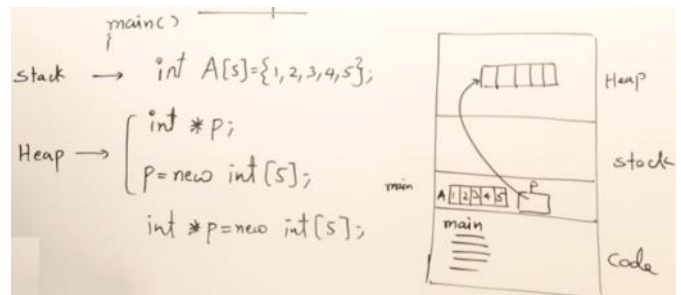 main()
{
Stack → int A[5]={1,2,3,4,5};
Heap → { int *p;
p=new int[5];
int *p=new int[5];
Heap
stack
main A 1 2 3 4 5 P
main
Code